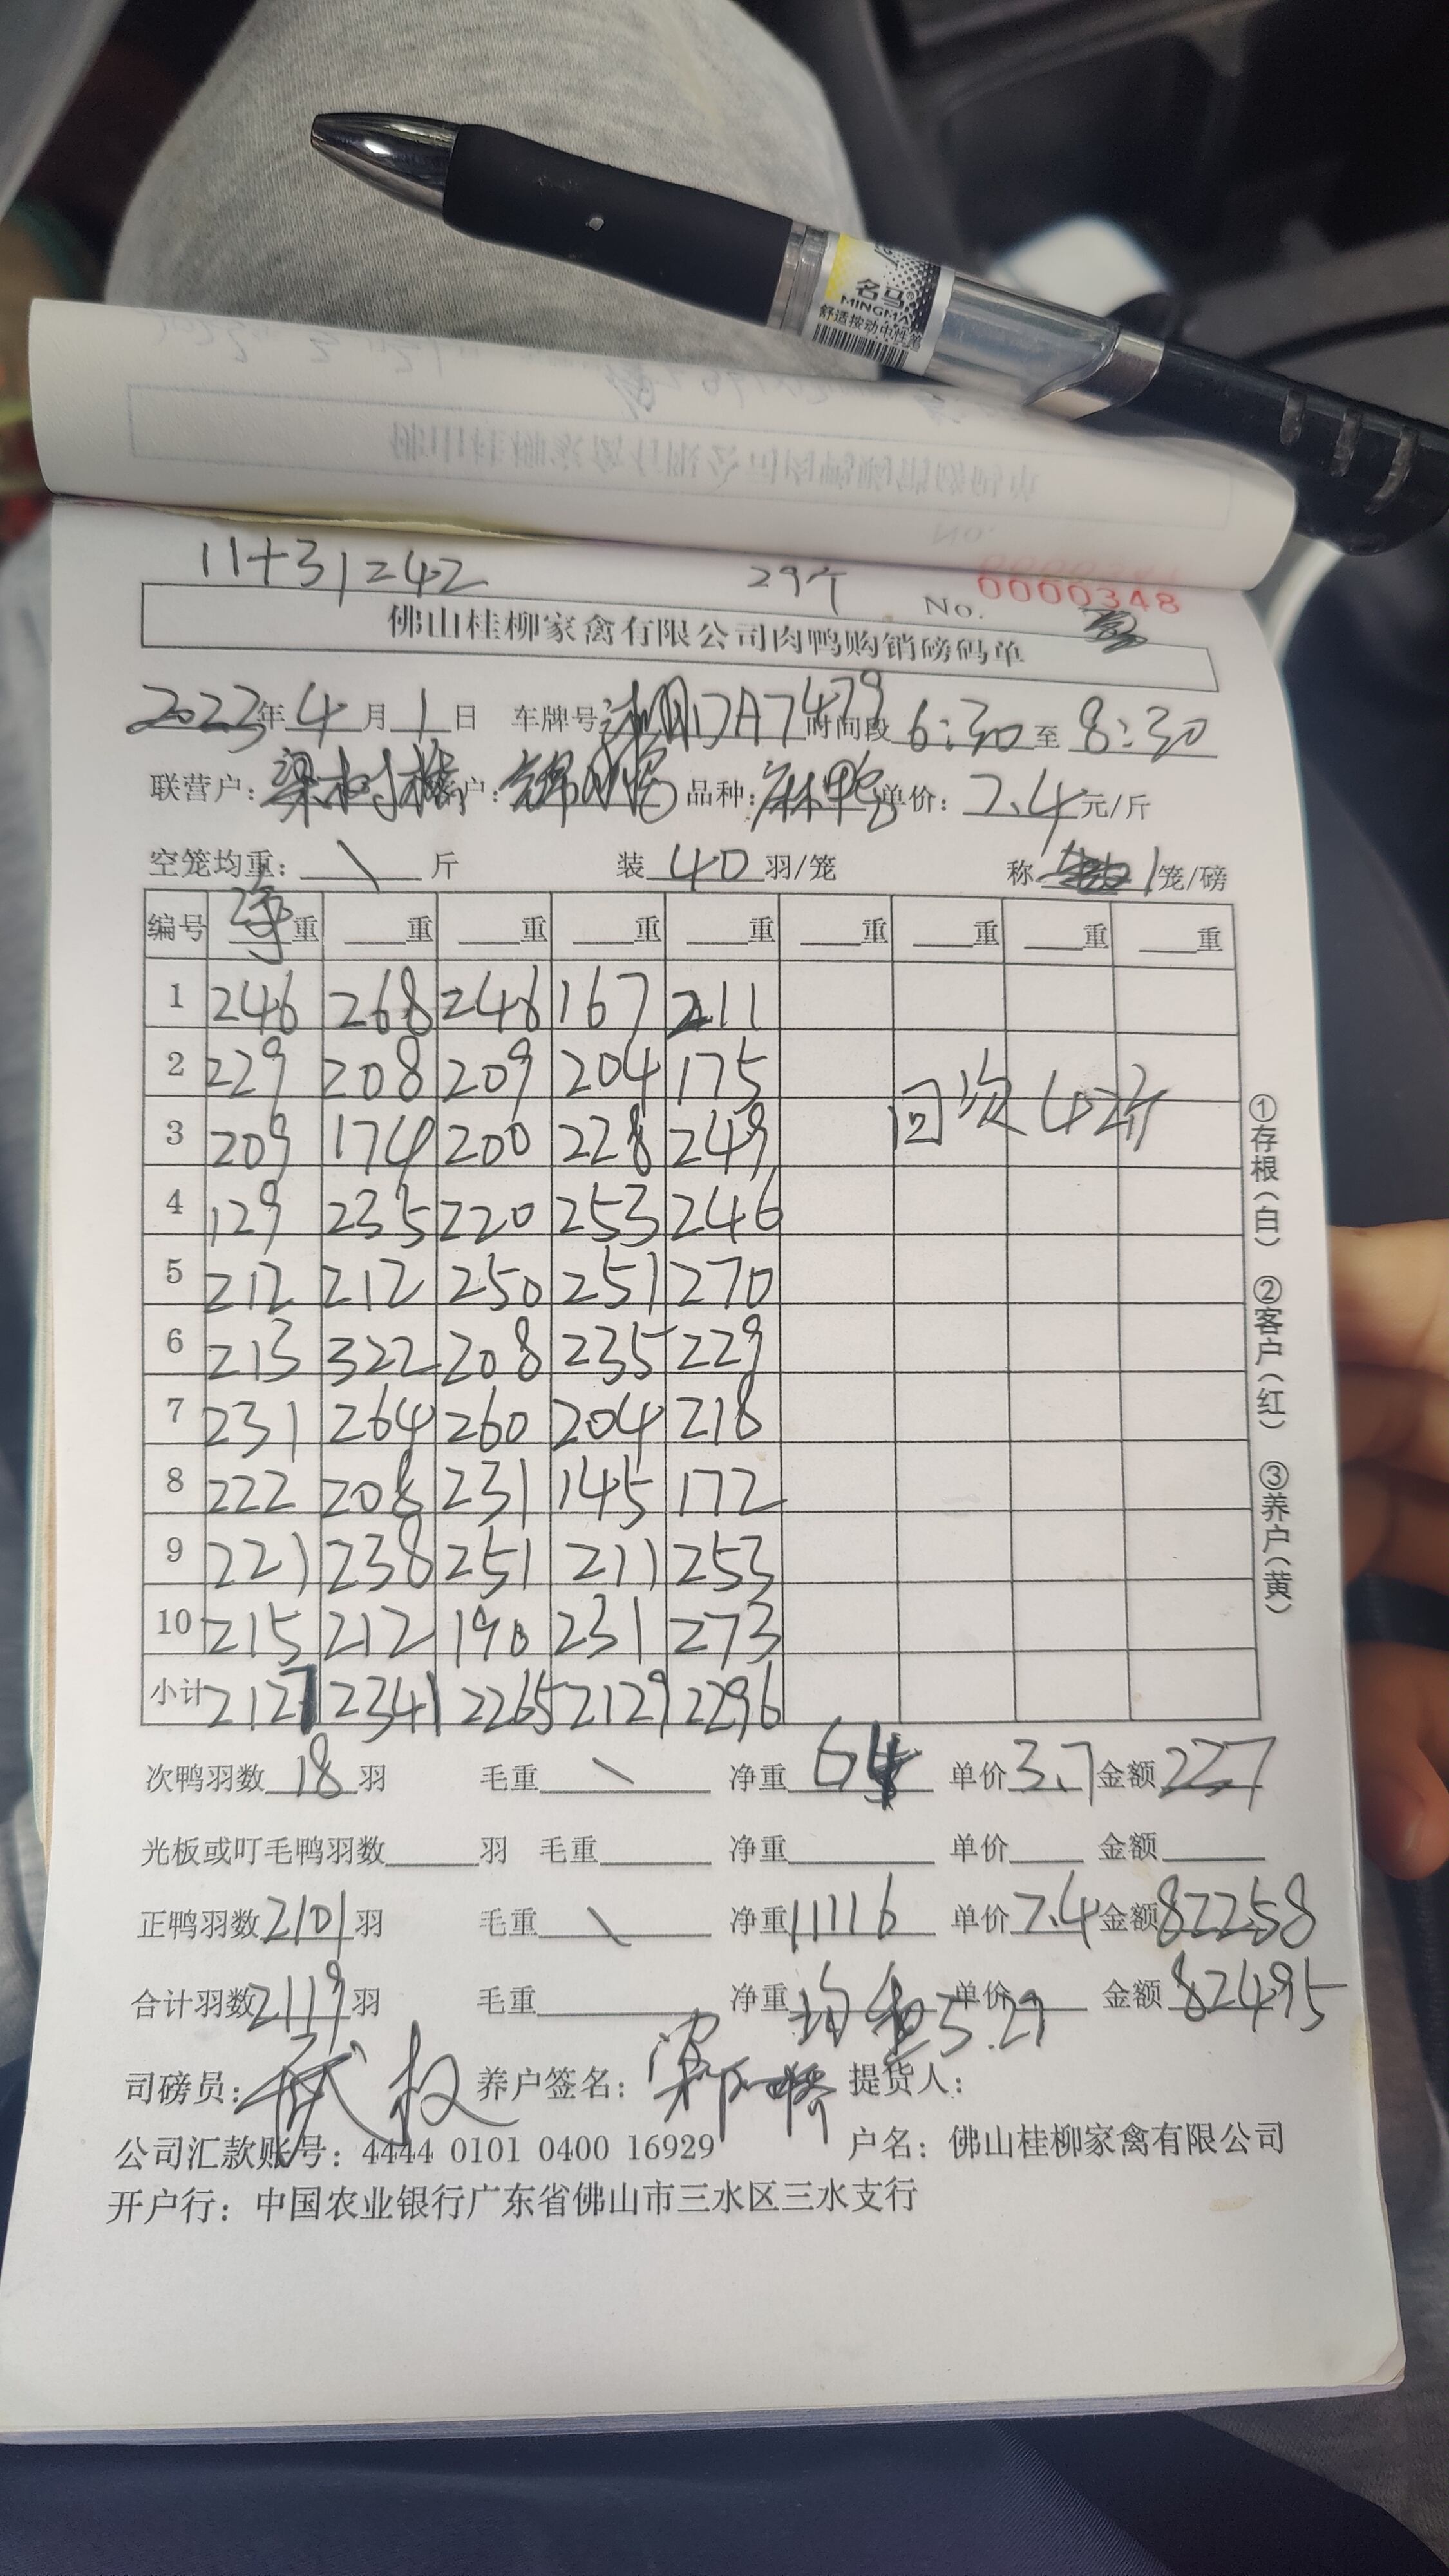 名马
MINGMA
舒适按动中性笔
11+31=42 29个 No. 0000348
佛山桂柳家禽有限公司肉鸭购销磅码单
2023年4月1日 车牌号 DA7479 时间段 6:30 至 8:30
联营户：梁树 户： 品种：麻鸭 单价：7.4元/斤
空笼均重：\斤 装40羽/笼 称1笼/磅
编号 净重 重 重 重 重 重 重 重 重
1 246 268 246 167 211
2 229 208 209 204 175
3 209 174 200 228 249 回次42斤
4 129 235 220 253 246
5 212 212 250 251 270
6 213 322 208 235 229
7 231 264 260 204 218
8 222 208 231 145 172
9 221 238 251 211 253
10 215 212 190 231 273
小计 2127 2341 2265 2129 2296
次鸭羽数18羽 毛重\ 净重64 单价3.7 金额227
光板或叮毛鸭羽数 羽 毛重 净重 单价 金额
正鸭羽数2101羽 毛重\ 净重11116 单价7.4 金额82258
合计羽数2119羽 毛重 净重 均重5.29 单价 金额82495
司磅员： 权 养户签名：梁 提货人：
公司汇款账号：4444 0101 0400 16929 户名：佛山桂柳家禽有限公司
开户行：中国农业银行广东省佛山市三水区三水支行
①存根（白） ②客户（红） ③养户（黄）